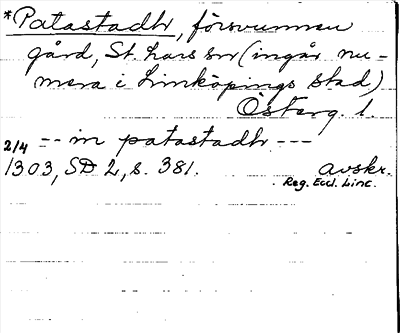 *Patastadhr, försvunnen
gård, St. Lars sn (ingår nu-
mera i Linköpings stad)
Österg. l.
2/4 -- in patastadh ---
1303, SD 2, s. 381. avskr.
Reg. Eccl. Linc.